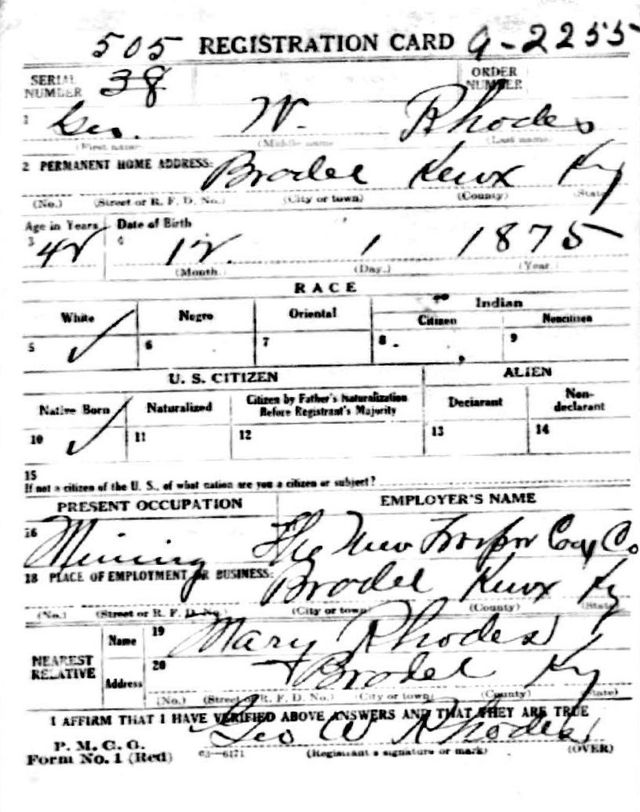 505 REGISTRATION CARD A-2255
SERIAL NUMBER 38 ORDER NUMBER
1 Geo. W. Rhodes
(First name) (Middle name) (Last name)
2 PERMANENT HOME ADDRESS: Brodel Knox Ky
(No.) (Street or R. F. D. No.) (City or town) (County) (State)
Age in Years Date of Birth
3 42 4 12 1 1875
(Month.) (Day.) (Year)
RACE
White Negro Oriental Indian
Citizen Noncitizen
5 ✓ 6 7 8 9
U. S. CITIZEN ALIEN
Native Born Naturalized Citizen by Father's Naturalization Before Registrant's Majority Declarant Non-declarant
10 ✓ 11 12 13 14
15
If not a citizen of the U. S., of what nation are you a citizen or subject?
PRESENT OCCUPATION EMPLOYER'S NAME
16 Mining The New Co
18 PLACE OF EMPLOYMENT OR BUSINESS: Brodel Knox Ky
(No.) (Street or R. F. D. No.) (City or town) (County) (State)
NEAREST RELATIVE Name 19 Mary Rhodes
Address 20 Brodel Ky
(No.) (Street or R. F. D. No.) (City or town) (County) (State)
I AFFIRM THAT I HAVE VERIFIED ABOVE ANSWERS AND THAT THEY ARE TRUE
P. M. G. O.
Form No. 1 (Red) 03—6171 Geo W Rhodes
(Registrant's signature or mark) (OVER)